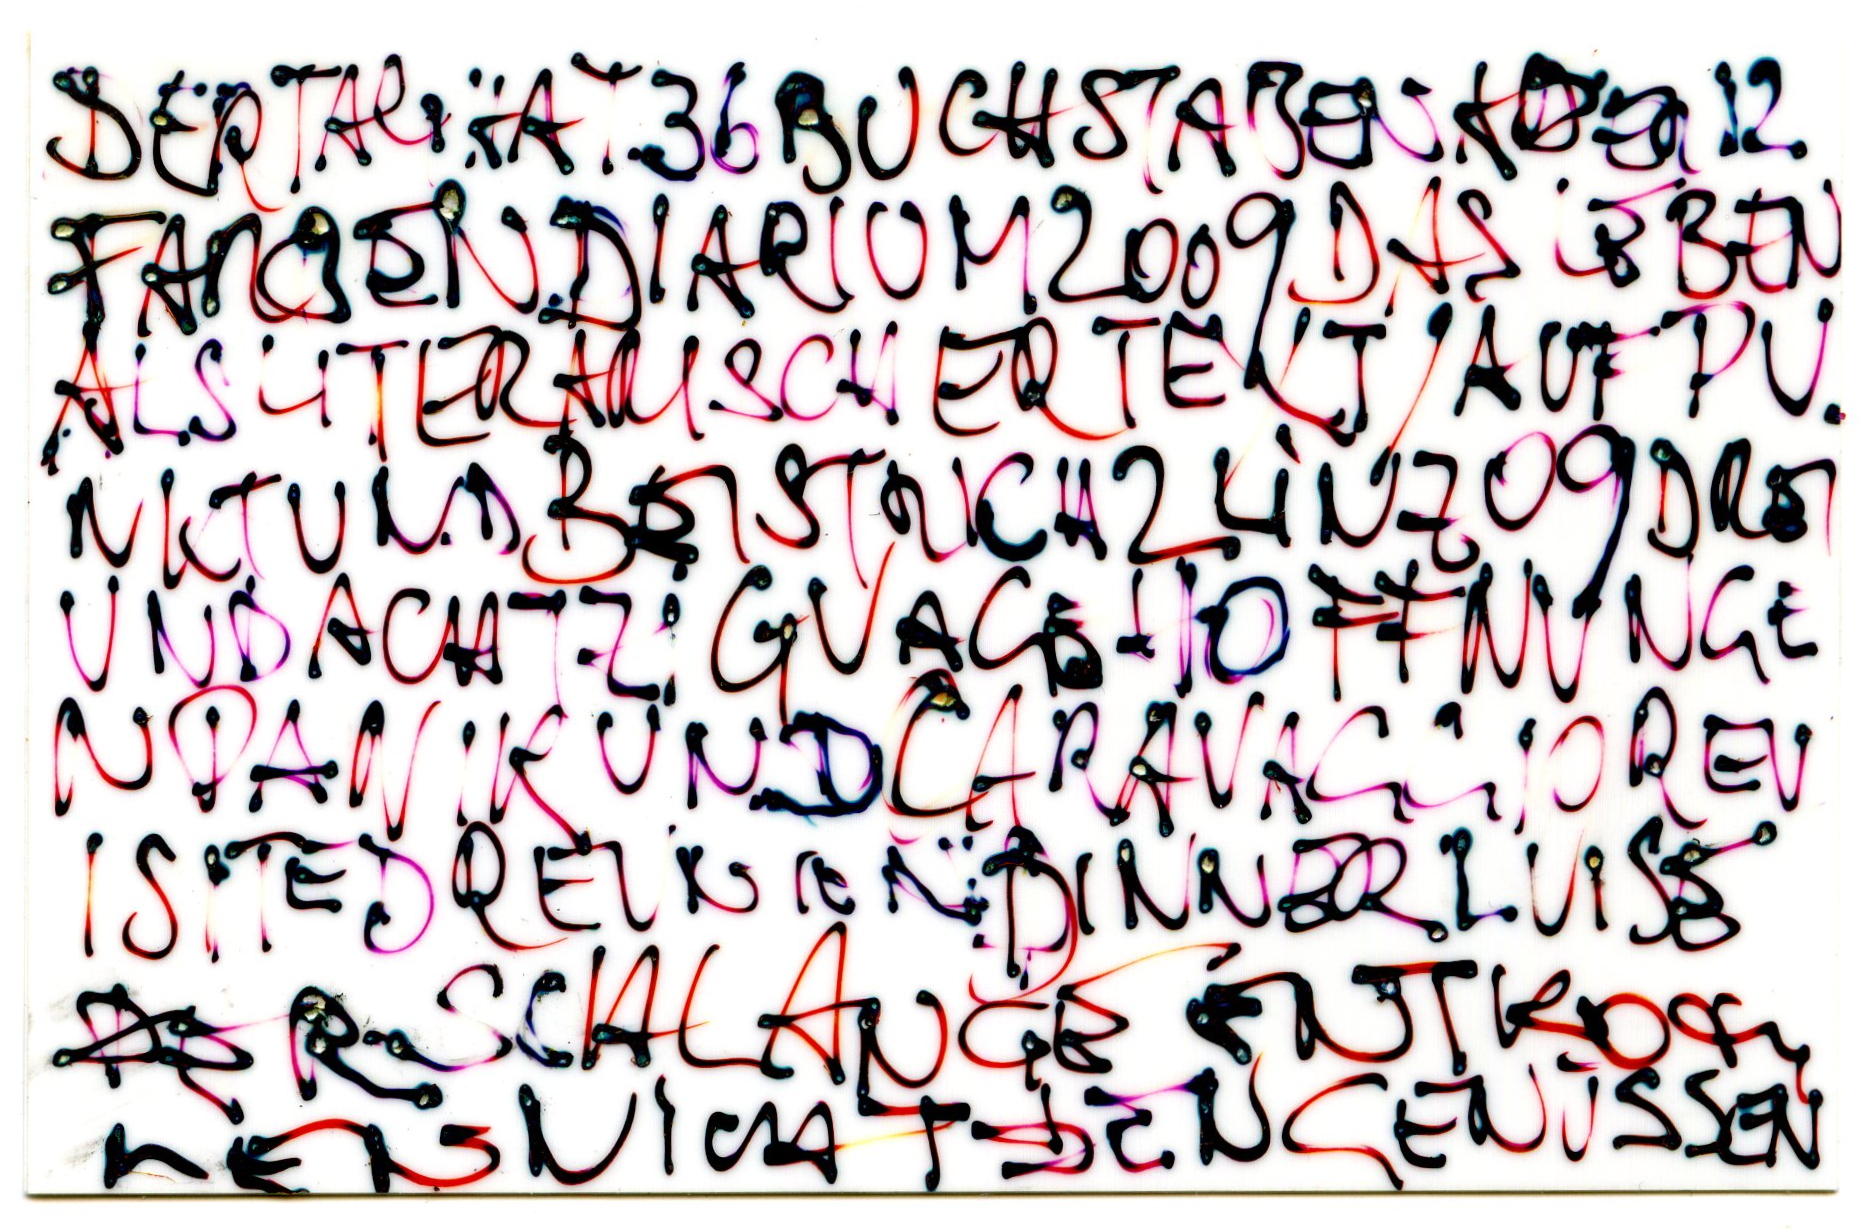 DER TARI HAT 36 BUCHSTABEN ODER 12
FANGEN DIARIUM 2009 DAS LEBEN
ALS LITERARISCHER TEXT / AUF PU.
NKT UND BEISTRICH 2 LINZ09 DREI
UNDACHTZIG VAGE HOFFNUNGE
N PANIK UND CARAVAGGIO REV
ISITED REVISITED DINNER LUISE
DER SCHLANGE ENTKOM
NICHT DEN GENÜSSEN